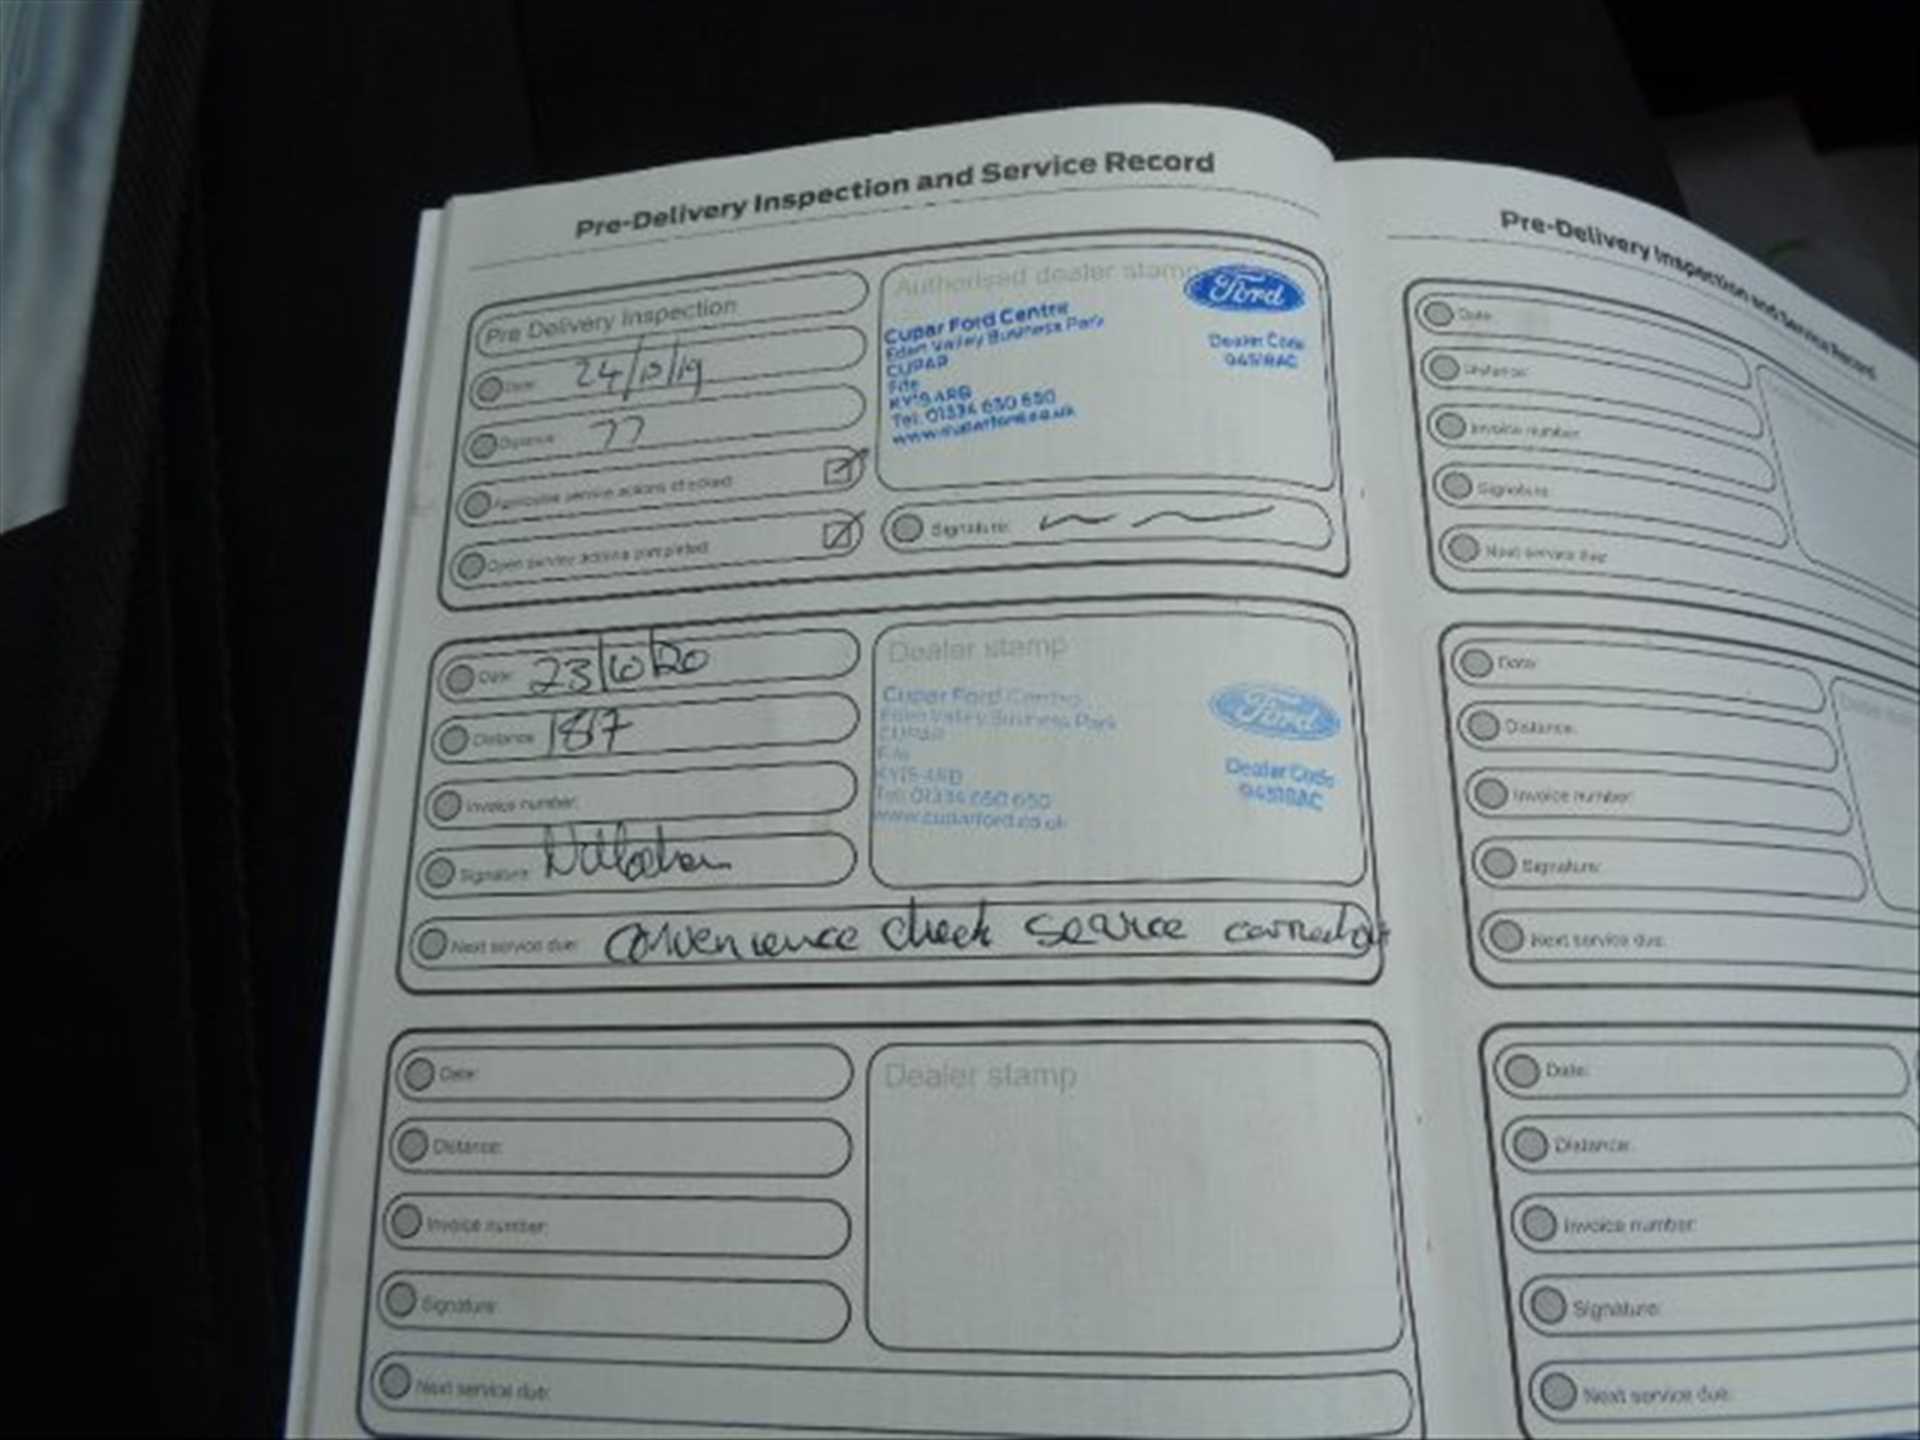 Pre-Delivery Inspection and Service Record
Pre Delivery Inspection
Date: 24/10/19
Distance: 77
Applicable service actions checked
Open service actions completed
Authorised dealer stamp
Ford
Cupar Ford Centre
Eden Valley Business Park
CUPAR
Fife
KY15 4RB
Tel: 01334 650 650
www.cuparford.co.uk
Dealer Code
94518AC
Signature:
Date: 23/10/20
Distance: 1817
Invoice number:
Signature:
Next service due: convenience check service carried out
Dealer stamp
Cupar Ford Centre
Eden Valley Business Park
CUPAR
Fife
KY15 4RB
Tel: 01334 650 650
www.cuparford.co.uk
Ford
Dealer Code
94518AC
Date:
Distance:
Invoice number:
Signature:
Next service due:
Dealer stamp
Pre-Delivery Inspection and Service Record
Date:
Distance:
Invoice number:
Signature:
Next service due:
Date:
Distance:
Invoice number:
Signature:
Next service due:
Date:
Distance:
Invoice number:
Signature:
Next service due: